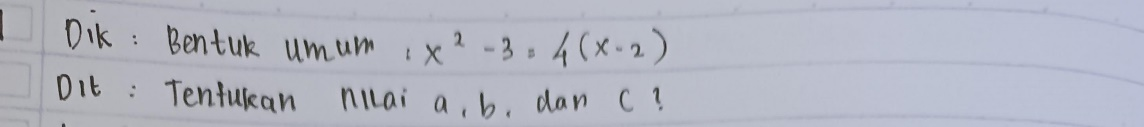 Dik : Bentuk umum : x² - 3 = 4(x - 2)
Dit : Tentukan nilai a, b, dan c ?